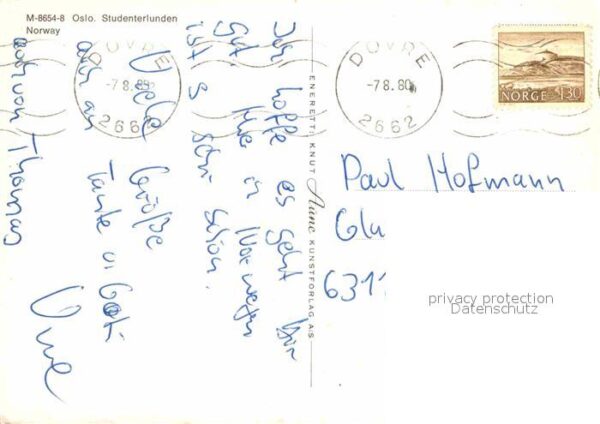 M-8654-8 Oslo. Studenterlunden
Norway
DOVRE
-7 8. 80
2662
DOVRE
-7 8. 80
2662
NORGE 1.30
Ich hoffe es geht Dir
gut. Hier in Norwegen
ist es sehr schön.
Viele Grüße
auch an Tante u.
auch von Thomas
Uwe
ENERETT: KNUT Aune KUNSTFORLAG A/S
Paul Hofmann
Gla
6311
privacy protection
Datenschutz